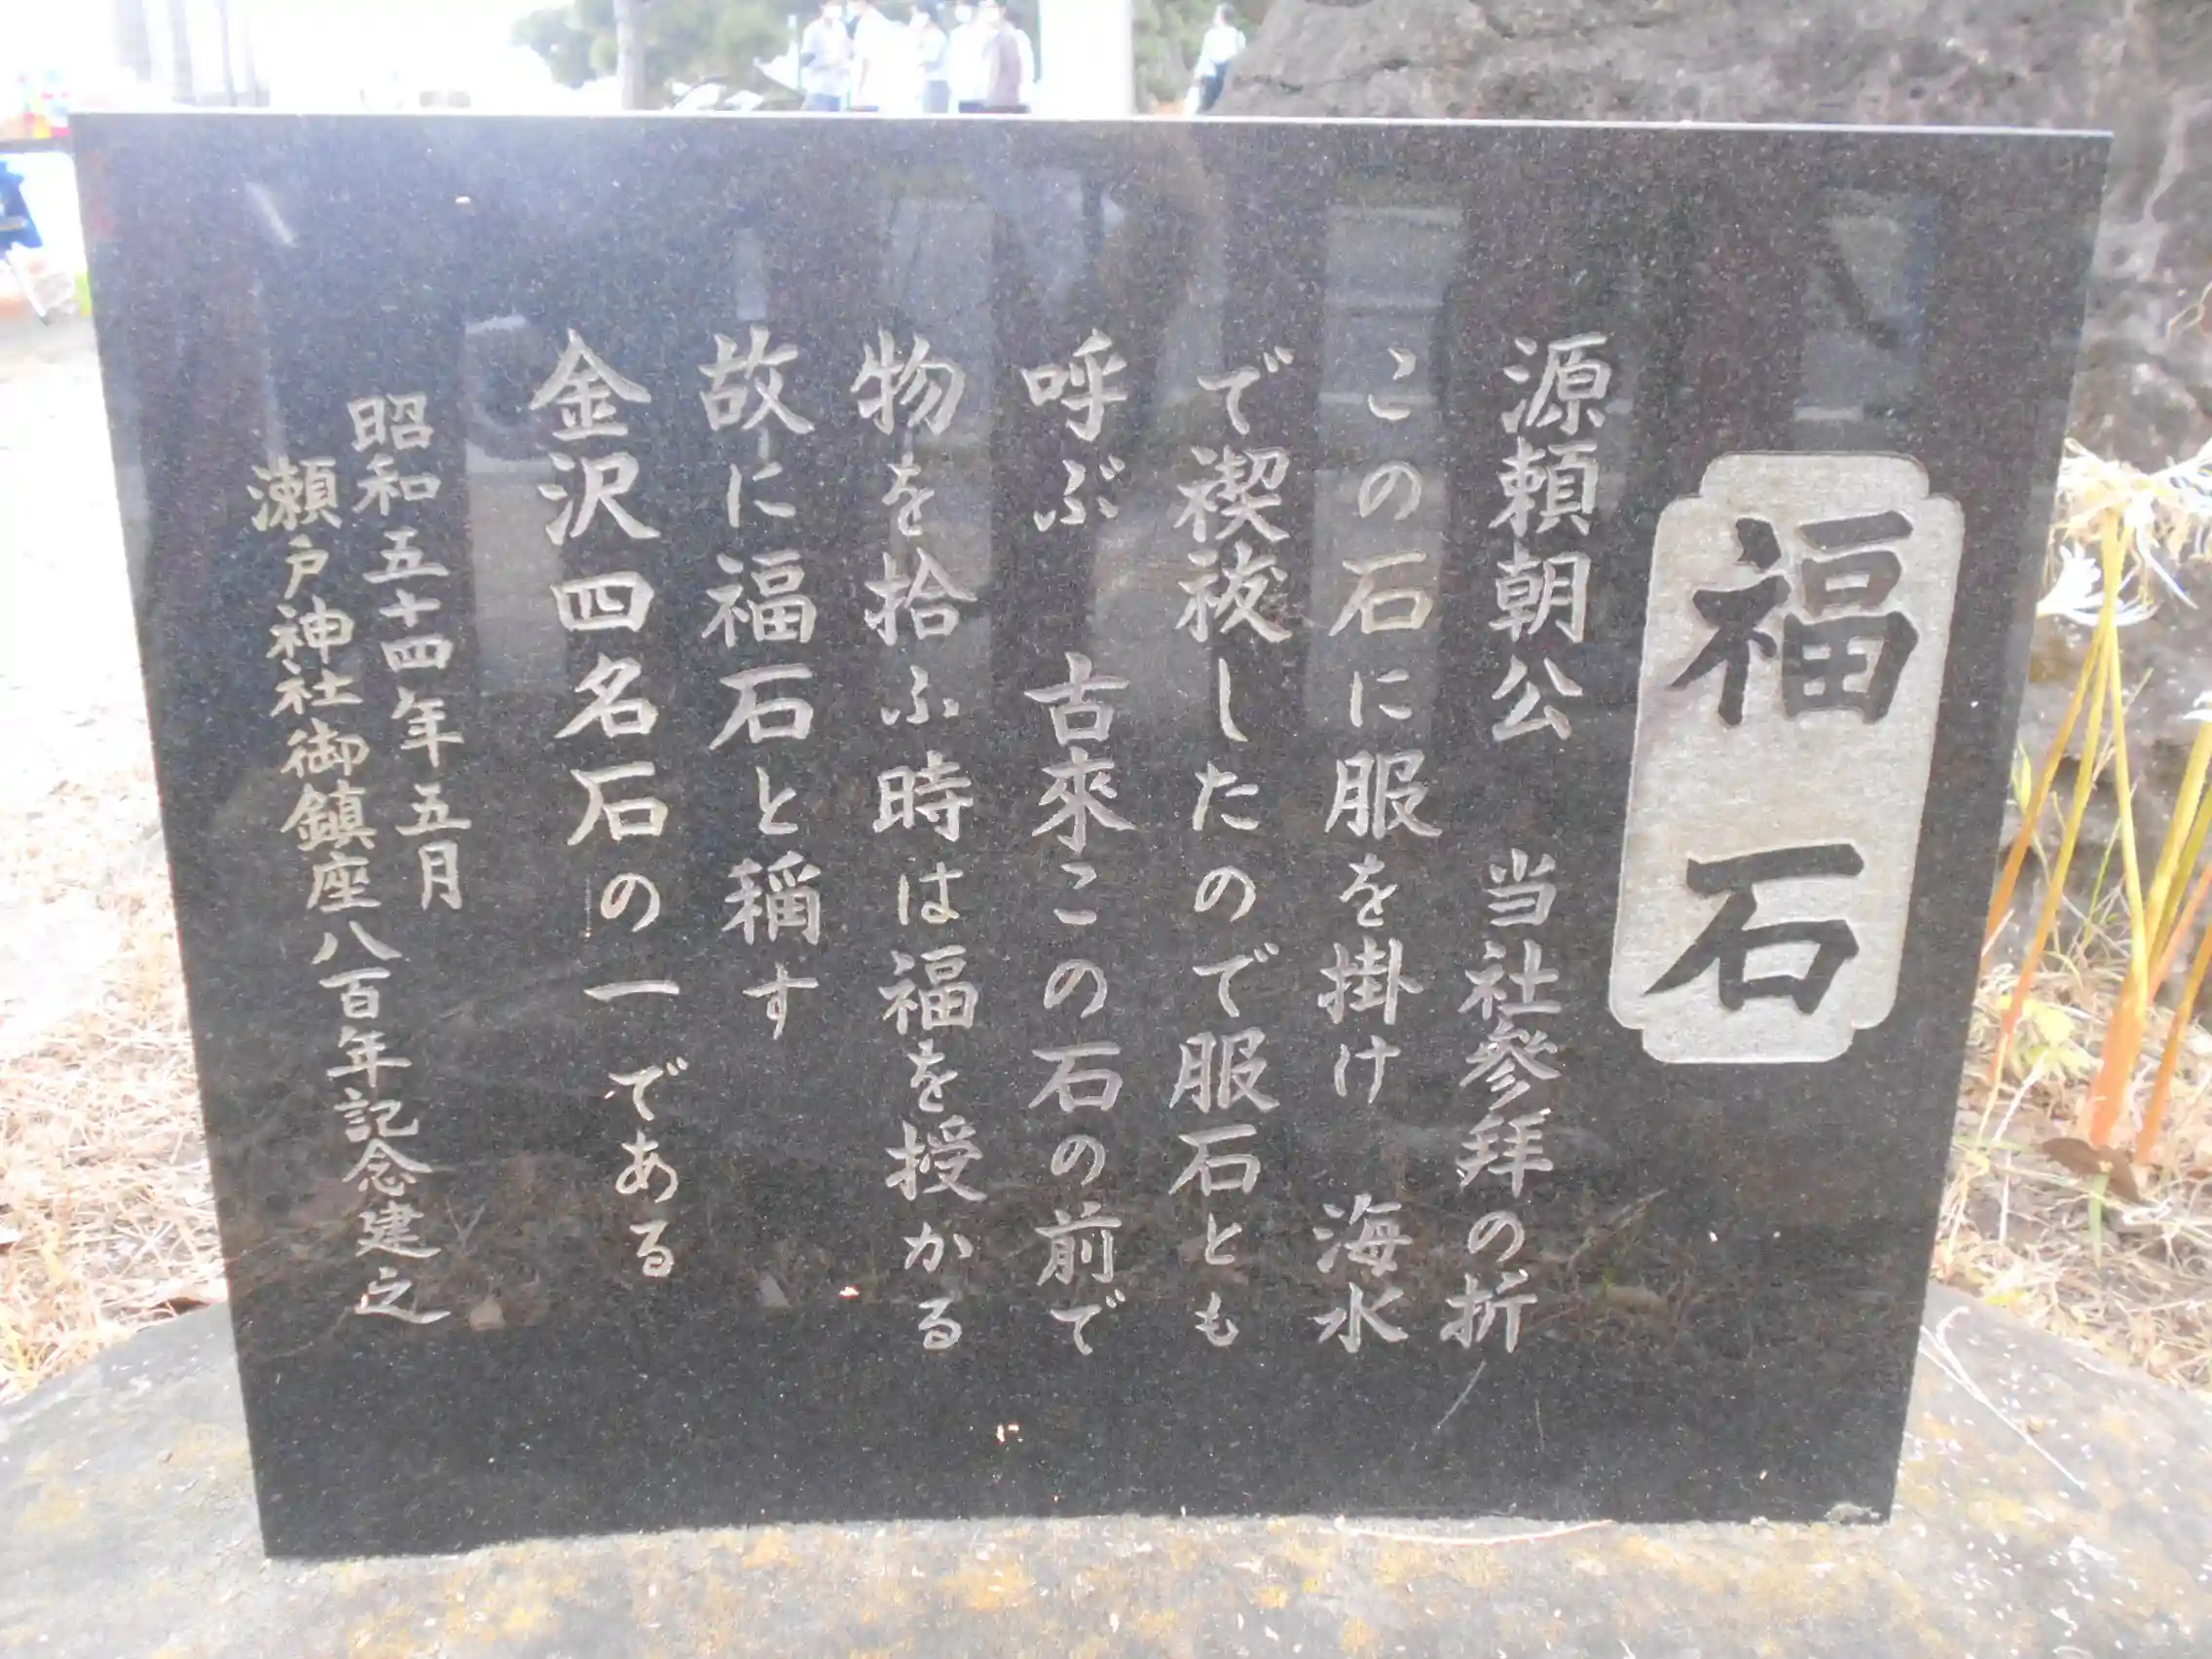 福石
源頼朝公　当社參拜の折
この石に服を掛け　海水
で禊祓したので服石とも
呼ぶ　古來この石の前で
物を拾ふ時は福を授かる
故に福石と稱す
金沢四名石の一である
昭和五十四年五月
瀬戸神社御鎮座八百年記念建之